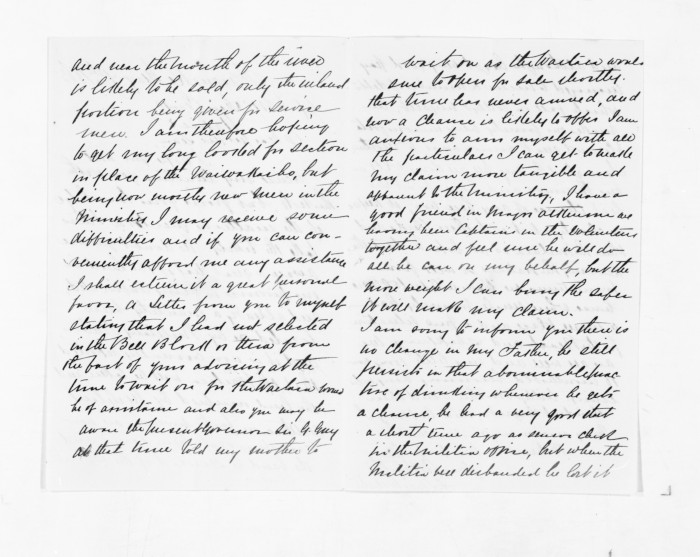 and near the mouth of the river
is likely to be sold, only the inland
portion being given for service
men. I am therefore hoping
to get my long looked for section
in place of the Waiwakaiho, but
being now mostly new men in the
Ministry I may receive some
difficulties and if you can con-
veniently afford me any assistance
I shall esteem it a great personal
favor, a letter from you to myself
stating that I had not selected
in the Bell Block or there from
the fact of your advising at the
time to wait on for the Waitara would
be of assistance and also you may be
aware the present Governor Sir G. Grey
at that time told my mother to
wait on as the Waitara would
sure to open for sale shortly.
that time has never arrived, and
now a chance is likely to offer I am
anxious to arm myself with all
the particulars I can get to make
my claim more tangible and
apparent to the Ministry, I have a
good friend in Major Atkinson we
having been Captains in the Volunteers
together and feel sure he will do
all he can on my behalf, but the
more weight I can bring the safer
it will make my claim.
I am sorry to inform you there is
no change in my Father, he still
persists in that abominable prac
tice of drinking whenever he gets
a chance, he had a very good start
a short time ago as senior clerk
in the Militia office, but when the
Militia was disbanded he lost it